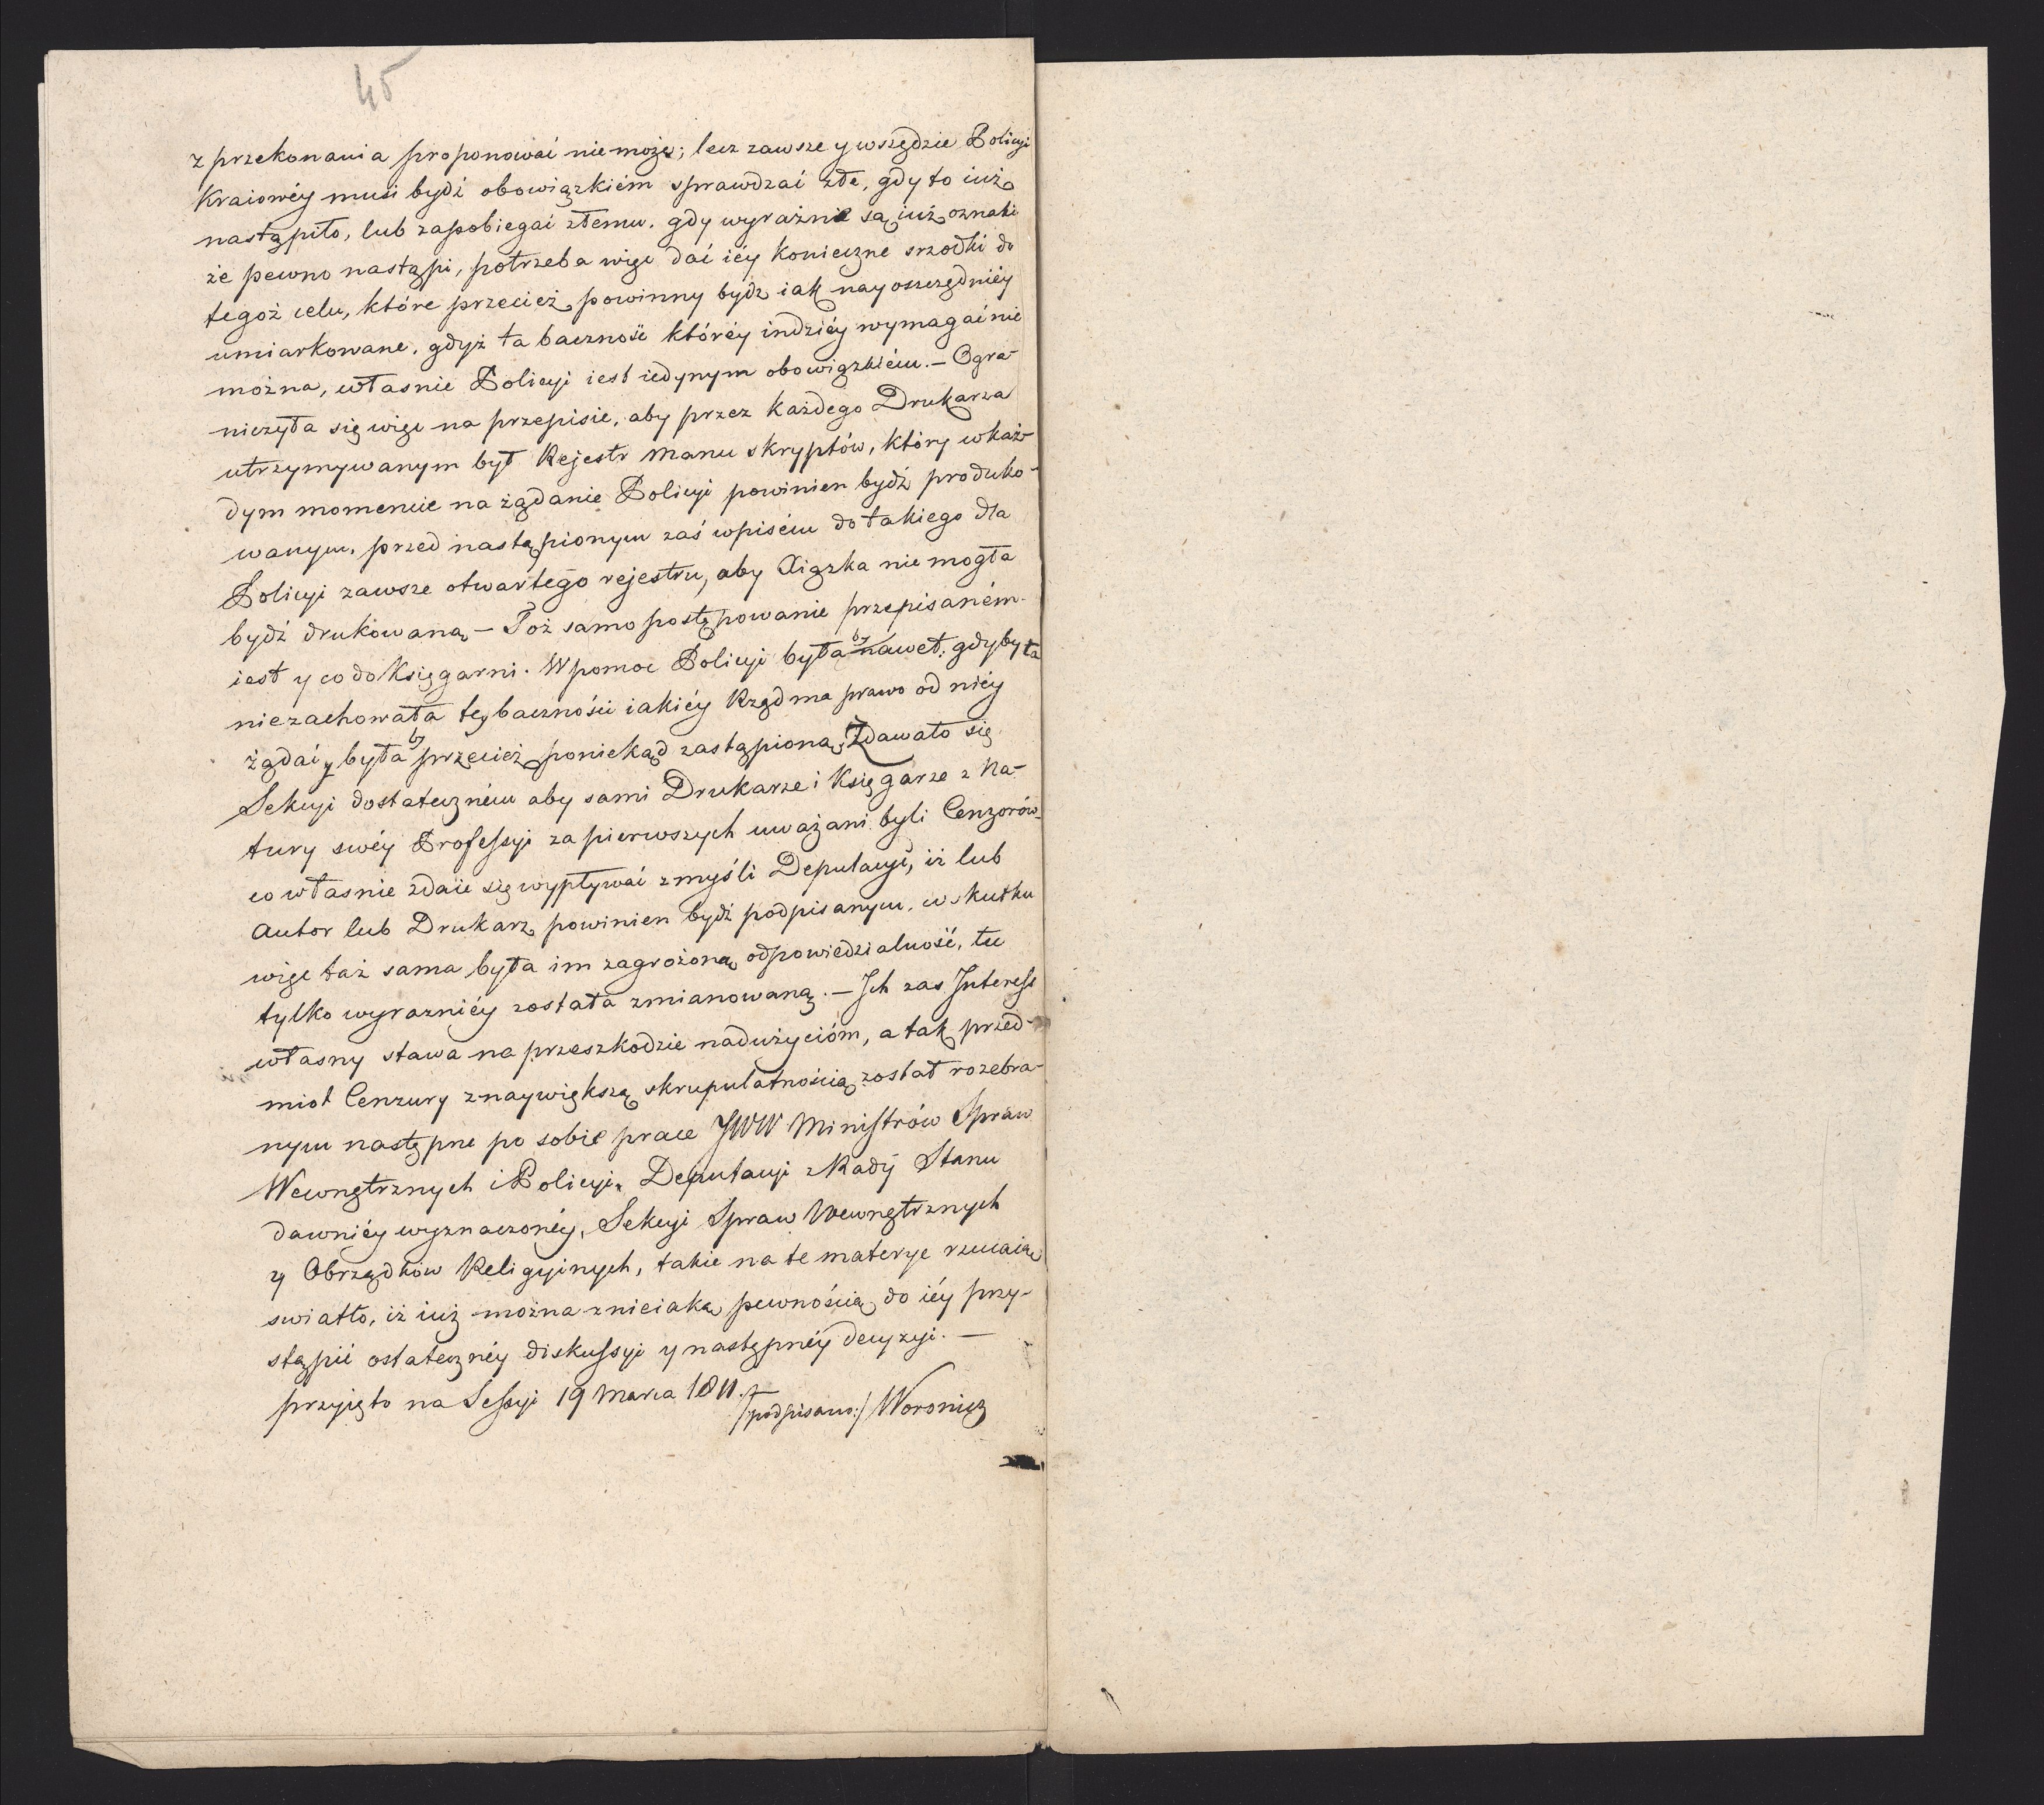 45
z przekonania proponować nie może; lecz zawsze y wszędzie Policyi
Kraiowéy musi bydź obowiązkiém sprawdzać złe, gdy to iuż
nastąpiło, lub zapobiegać złemu, gdy wyraźnie są iuż oznaki
że pewno nastąpi, potrzeba więc dać iéy konieczne srzodki do
tegoż celu, które przecież powinny bydz iak nayoszczędniéy
umiarkowane, gdyż ta baczność któréy indziéy wymagać nie
można, własnie Policyi iest iedynym obowiązkiém. — Ogra-
niczyła się więc na przepisie, aby przez każdego Drukarza
utrzymywanym był Rejestr Manuskryptów, który w każ-
dym momencie na żądanie Policyi powinien bydź produko-
wanym, przed nastąpionym zaś wpisém do takiego dla
Policyi zawsze otwartego rejestru, aby Xiązka nie mogła
bydź drukowaną — Toż samo postępowanie przepisaném
iest y co do Księgarni. W pomoc Policyi byłaby nawet, gdyby ta
niezachowała tey baczności iakiéy Rząd ma prawo od niéy
żądać, y byłaby przecież poniekąd zastąpioną, Zdawało się
Sekcyi dostateczném aby sami Drukarze i Księgarze z Na-
tury swéy Professyi za pierwszych uważani byli Cenzorów
co własnie zdaie się wypływać z myśli Deputacyi, iż lub
Autor lub Drukarz powinien bydź podpisanym, w skutku
więc taż sama była im zagrożoną odpowiedzialność, tu
tylko wyrazniéy została zmianowaną. — Ich zas Interess
własny stawa na przeszkodzie nadużycióm, a tak przed-
miot Cenzury z naywiększą skrupulatnością został rozebra-
nym następne po sobie prace JWW Ministrów Spraw
Wewnętrznych i Policyi, Deputacyi z Rady Stanu
dawniéy wyznaczonéy, Sekcyi Spraw Wewnętrznych
y Obrządków Religyinych, takie na te materye rzucaią
swiatło, iż iuż można z nieiaką pewnością do iéy przy-
stąpić ostateczney diskussyi y następnéy decyzyi. —
przyięto na Sessyi 19 Marca 1811.
/podpisano:/ Woronicz